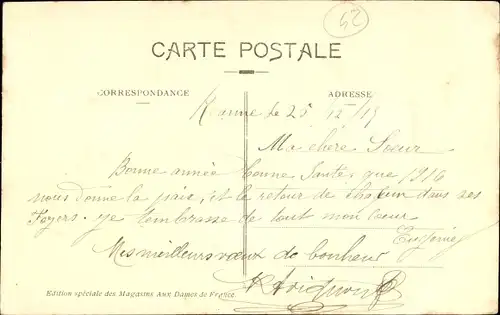 62
CARTE POSTALE
CORRESPONDANCE
ADRESSE
le 25 / 12 / 15
Ma chère Soeur
Bonne année bonne Santé, que 1916
nous donne la paix, et le retour de chacun dans ses
Foyers. je t'embrasse de tout mon Coeur
Eugénie
Mes meilleurs voeux de bonheur
Edition spéciale des Magasins Aux Dames de France